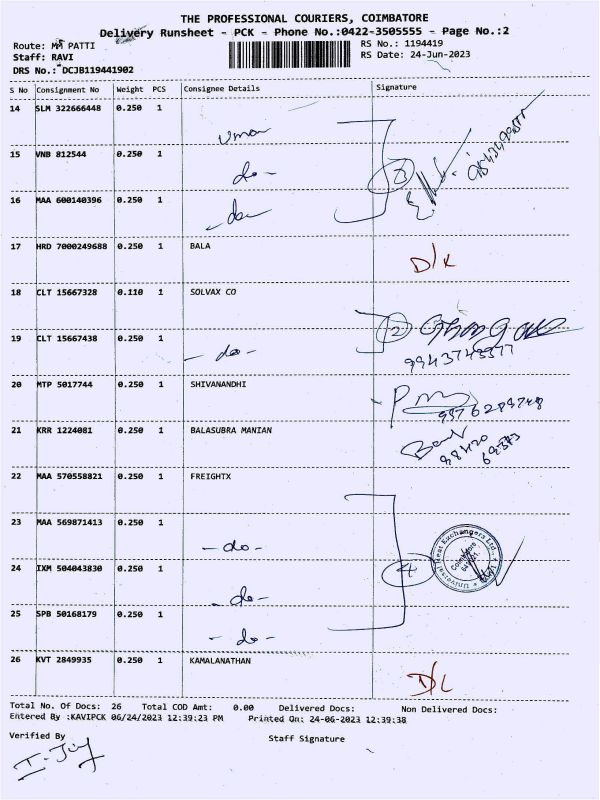 THE PROFESSIONAL COURIERS, COIMBATORE
Delivery Runsheet - PCK - Phone No.:0422-3505555 - Page No.:2
Route: MM PATTI RS No.: 1194419
Staff: RAVI RS Date: 24-Jun-2023
DRS No.: DCJB119441902
S No Consignment No Weight PCS Consignee Details Signature
14 SLM 322666448 0.250 1 Uma
15 VNB 812544 0.250 1 do - 3
16 MAA 600140396 0.250 1 - do -
17 HRD 7000249688 0.250 1 BALA D/L
18 CLT 15667328 0.110 1 SOLVAX CO
2
19 CLT 15667438 0.250 1 - do - 9943743377
20 MTP 5017744 0.250 1 SHIVANANDHI
21 KRR 1224081 0.250 1 BALASUBRA MANIAN
22 MAA 570558821 0.250 1 FREIGHTX
23 MAA 569871413 0.250 1 - do -
Universal Heat Exchangers Ltd.,
Coimbatore
24 IXM 504043830 0.250 1 - do - 4
25 SPB 50168179 0.250 1 - do -
26 KVT 2849935 0.250 1 KAMALANATHAN D/L
Total No. Of Docs: 26 Total COD Amt: 0.00 Delivered Docs: Non Delivered Docs:
Entered By :KAVIPCK 06/24/2023 12:39:23 PM Printed On: 24-06-2023 12:39:38
Verified By Staff Signature